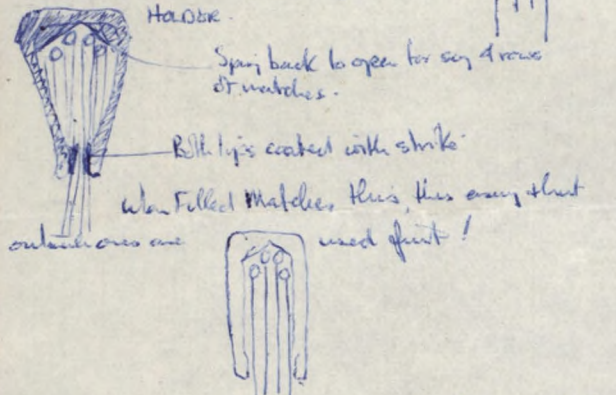 HOLDER.
Spring back to open for say 4 rows
of matches.
Both lips coated with strike
when Filled Matches thus, thus easy that
outside ones are used first!